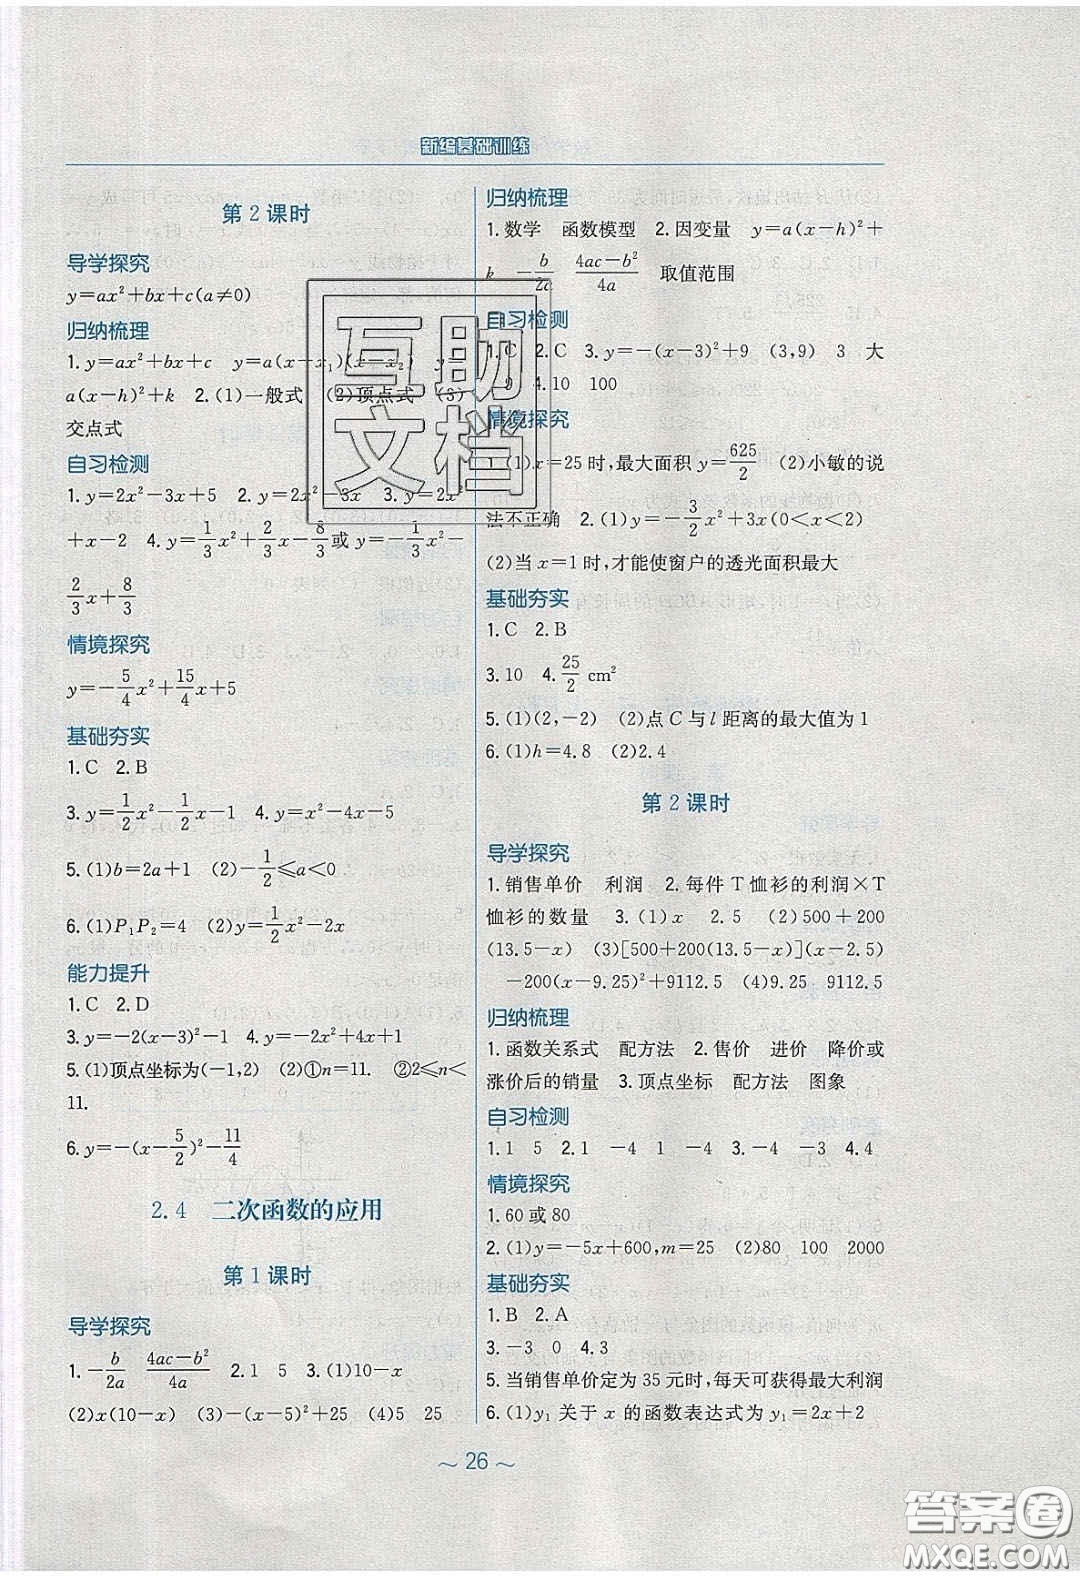 新编基础训练
第2课时
导学探究
y=ax²+bx+c(a≠0)
归纳梳理
1. y=ax²+bx+c　y=a(x-x₁)(x-x₂)　y=
a(x-h)²+k　2. (1)一般式　(2)顶点式　(3)
交点式
自习检测
1. y=2x²-3x+5　2. y=2x²-3x　3. y=2x²
+x-2　4. y=1/3x²+2/3x-8/3或 y=-1/3x²-
2/3x+8/3
情境探究
y=-5/4x²+15/4x+5
基础夯实
1. C　2. B
3. y=1/2x²-1/2x-1　4. y=x²-4x-5
5. (1)b=2a+1　(2)-1/2≤a<0
6. (1)P₁P₂=4　(2)y=1/2x²-2x
能力提升
1. C　2. D
3. y=-2(x-3)²-1　4. y=-2x²+4x+1
5. (1)顶点坐标为(-1,2)　(2)①n=11.　②2≤n<
11.
6. y=-(x-5/2)²-11/4
2.4　二次函数的应用
第1课时
导学探究
1. -b/2a　4ac-b²/4a　2. 1　5　3. (1)10-x
(2)x(10-x)　(3)-(x-5)²+25　(4)5　25
归纳梳理
1. 数学　函数模型　2. 因变量　y=a(x-h)²+
k　-b/2a　4ac-b²/4a　取值范围
自习检测
1. C　2. C　3. y=-(x-3)²+9　(3,9)　3　大
9　4. 10　100
情境探究
1. (1)x=25时,最大面积 y=625/2　(2)小敏的说
法不正确　2. (1)y=-3/2x²+3x(0<x<2)
(2)当 x=1时,才能使窗户的透光面积最大
基础夯实
1. C　2. B
3. 10　4. 25/2 cm²
5. (1)(2,-2)　(2)点 C 与 l 距离的最大值为1
6. (1)h=4.8　(2)2.4
第2课时
导学探究
1. 销售单价　利润　2. 每件T恤衫的利润×T
恤衫的数量　3. (1)x　2.5　(2)500+200
(13.5-x)　(3)[500+200(13.5-x)](x-2.5)
-200(x-9.25)²+9112.5　(4)9.25　9112.5
归纳梳理
1. 函数关系式　配方法　2. 售价　进价　降价或
涨价后的销量　3. 顶点坐标　配方法　图象
自习检测
1. 1　5　2. 1　-4　1　-4　3. -4　-3　4. 4
情境探究
1. 60或80
2. (1)y=-5x+600,m=25　(2)80　100　2000
基础夯实
1. B　2. A
3. -3　0　4. 3
5. 当销售单价定为35元时,每天可获得最大利润
6. (1)y₁ 关于 x 的函数表达式为 y₁=2x+2
～ 26 ～
互助
文档
答案圈
MXQE.COM